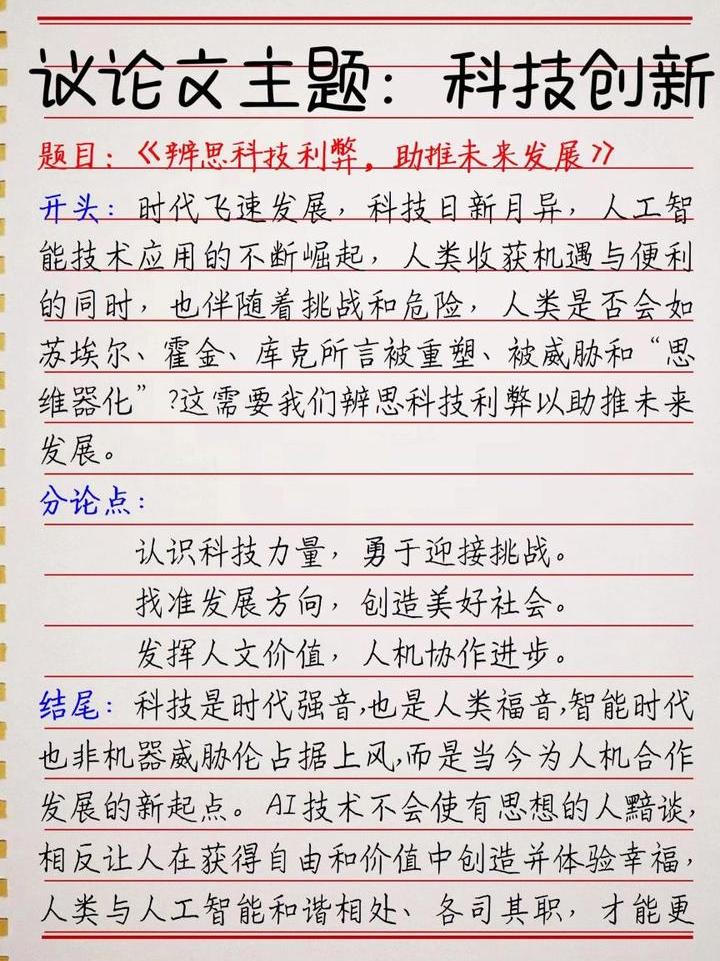 议论文主题：科技创新
题目：《辨思科技利弊，助推未来发展》
开头：时代飞速发展，科技日新月异，人工智
能技术应用的不断崛起，人类收获机遇与便利
的同时，也伴随着挑战和危险，人类是否会如
苏埃尔、霍金、库克所言被重塑、被威胁和“思
维器化”?这需要我们辨思科技利弊以助推未来
发展。
分论点：
认识科技力量，勇于迎接挑战。
找准发展方向，创造美好社会。
发挥人文价值，人机协作进步。
结尾：科技是时代强音,也是人类福音,智能时代
也非机器威胁伦占据上风,而是当今为人机合作
发展的新起点。AI技术不会使有思想的人黯谈,
相反让人在获得自由和价值中创造并体验幸福，
人类与人工智能和谐相处、各司其职，才能更